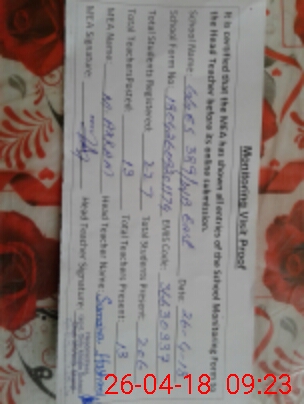 Monitoring Visit Proof
It is certified that the MEA has shown all entries of the School Monitoring Form to
the Head Teacher before its online submission.
School Name: 389/WB Date: 26-4-18
School Form No: EMIS Code: 36630337
Total Students Registered: 227 Total Students Present: 206
Total Teachers Posted: 13 Total Teachers Present: 13
MEA Name: M. AKRAM Head Teacher Name: Samana
MEA Signature: Head Teacher Signature:
26-04-18 09:23